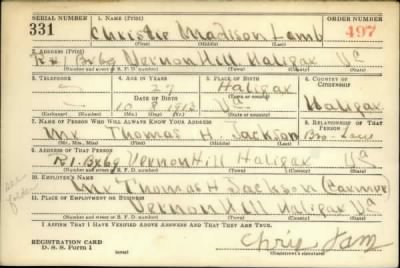 SERIAL NUMBER 1. NAME (Print) ORDER NUMBER
331 Christie Madison Lamb 497
(First) (Middle) (Last)
2. ADDRESS (Print)
Rt Bx69 Vernon Hill Halifax Va
(Number and street or R. F. D. number) (Town) (County) (State)
3. TELEPHONE 4. AGE IN YEARS 5. PLACE OF BIRTH 6. COUNTRY OF CITIZENSHIP
27 Halifax
DATE OF BIRTH (Town or county)
10 8 1913 Va Halifax
(Exchange) (Number) (Mo.) (Day) (Yr.) (State or country)
7. NAME OF PERSON WHO WILL ALWAYS KNOW YOUR ADDRESS 8. RELATIONSHIP OF THAT PERSON
Mr Thomas H. Jackson Bro-Law
(Mr., Mrs., Miss) (First) (Middle) (Last)
9. ADDRESS OF THAT PERSON
Rt. Bx69 Vernon Hill Halifax Va
(Number and street or R. F. D. number) (Town) (County) (State)
10. EMPLOYER'S NAME
Mr Thomas H Jackson
11. PLACE OF EMPLOYMENT OR BUSINESS
Vernon Hill Halifax Va
(Number and street or R. F. D. number) (Town) (County) (State)
I AFFIRM THAT I HAVE VERIFIED ABOVE ANSWERS AND THAT THEY ARE TRUE.
REGISTRATION CARD
D. S. S. Form 1 (over) (Registrant's signature)